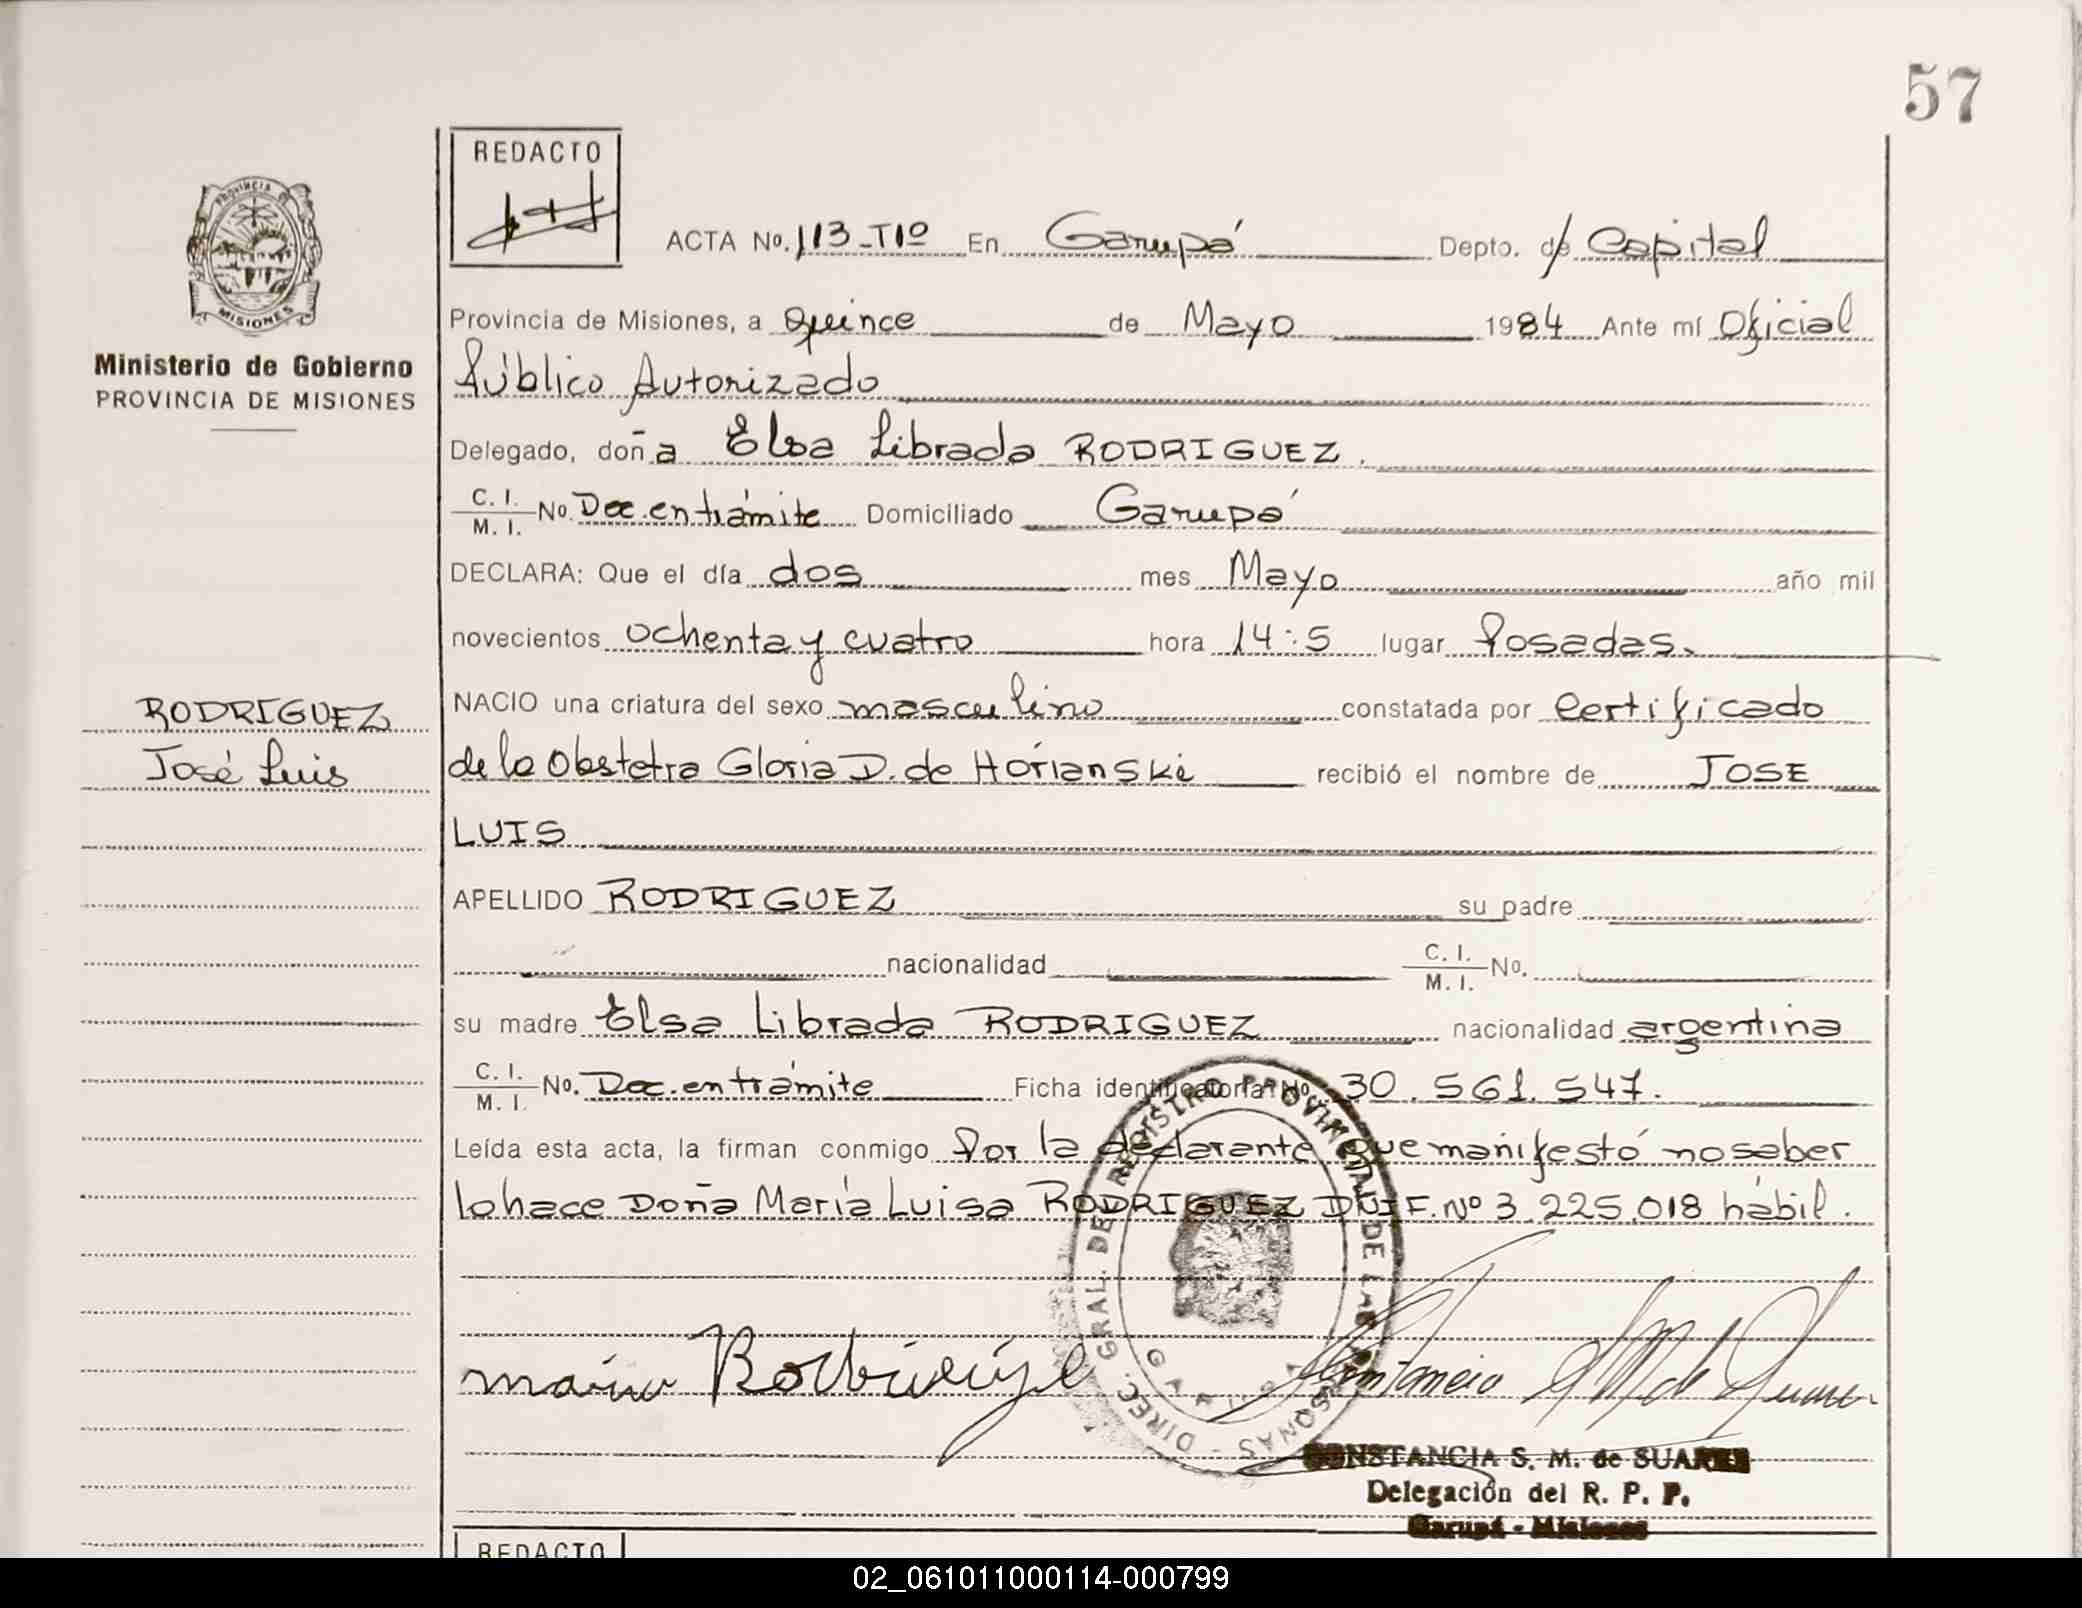 57
REDACTO
ACTA No. 113-TIº En Garupá Depto. de Capital
PROVINCIA DE
MISIONES
Ministerio de Gobierno
PROVINCIA DE MISIONES
Provincia de Misiones, a quince de Mayo 1984 Ante mí Oficial
Público Autorizado
Delegado, doña Elsa Librada RODRIGUEZ.
C. I.
M. I. No. Doc. en trámite Domiciliado Garupá
DECLARA: Que el día dos mes Mayo año mil
novecientos ochenta y cuatro hora 14:5 lugar Posadas.
RODRIGUEZ
José Luis
NACIO una criatura del sexo masculino constatada por Certificado
de la Obstetra Gloria D. de Horianski recibió el nombre de JOSE
LUIS
APELLIDO RODRIGUEZ su padre
nacionalidad C. I.
M. I. No.
su madre Elsa Librada RODRIGUEZ nacionalidad argentina
C. I.
M. I. No. Doc. en trámite Ficha identificatoria No. 30.561.547.
Leída esta acta, la firman conmigo Por la declarante que manifestó no saber
lo hace Doña María Luisa RODRIGUEZ DNI F. Nº 3.225.018 hábil.
DIREC. GRAL. DEL REGISTRO PROVINCIAL DE LAS PERSONAS
GARUPA
CONSTANCIA S. M. de SUAREZ
Delegación del R. P. P.
Garupá - Misiones
REDACTO
02_061011000114-000799